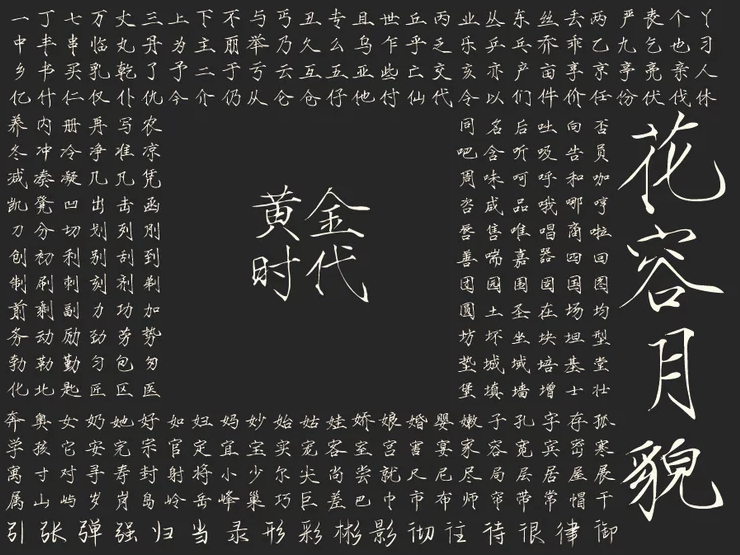 一丁七万丈三上下不与丐丑专且世丘丙业丛东丝丢两严丧个丫
中丰串临丸丹为主丽举乃久么乌乍乎乏乐乒乓乔乖乙九乞也习
乡书买乳乾了予二于亏云互五亚些亡交亥亦产亩享京亭亮亲人
亿什仁仅仆仇今介仍从仑仓仔他付仙代令以们件价任份伏伐休
养内册再写农
冬冲冷净准凉
减凑凝几凡凭
凯凳凹出击函
刀分切划列到
创初利别刮到
制刷刺刻剂剃
前剩副力功加
务动励劲劳势
勃勒勤匀包匆
化北匙匠区医
黄金
时代
同名后吐向否
吧含听吸告员
周味呵呼和咖
咨咸品哦哪哼
唇售唯唱商啦
善喘嘉器四回
团园围国图
圆土圣在场均
坊坏坐块坦型
垫城域培基堂
堡填墙增士壮
花容月貌
奔奥女奶她好如妇妈妙始姑娃娇娘婚婴嫩子孔字存孤
学孩它安完宗官定宜宝实宠客室宫害宴家容宽宾密寒
寓寸对寻寿封射将小少尔尖尚尝就尺尼尽局居屋展
属山屿岁岗岛岭岳峰巢巧巨差巴巾市布师帘带常帽干
引张弹强归当录形彩彬影彻往待很律御